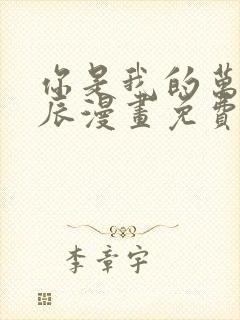 你是我的萬
辰漫畫免費
李章宇